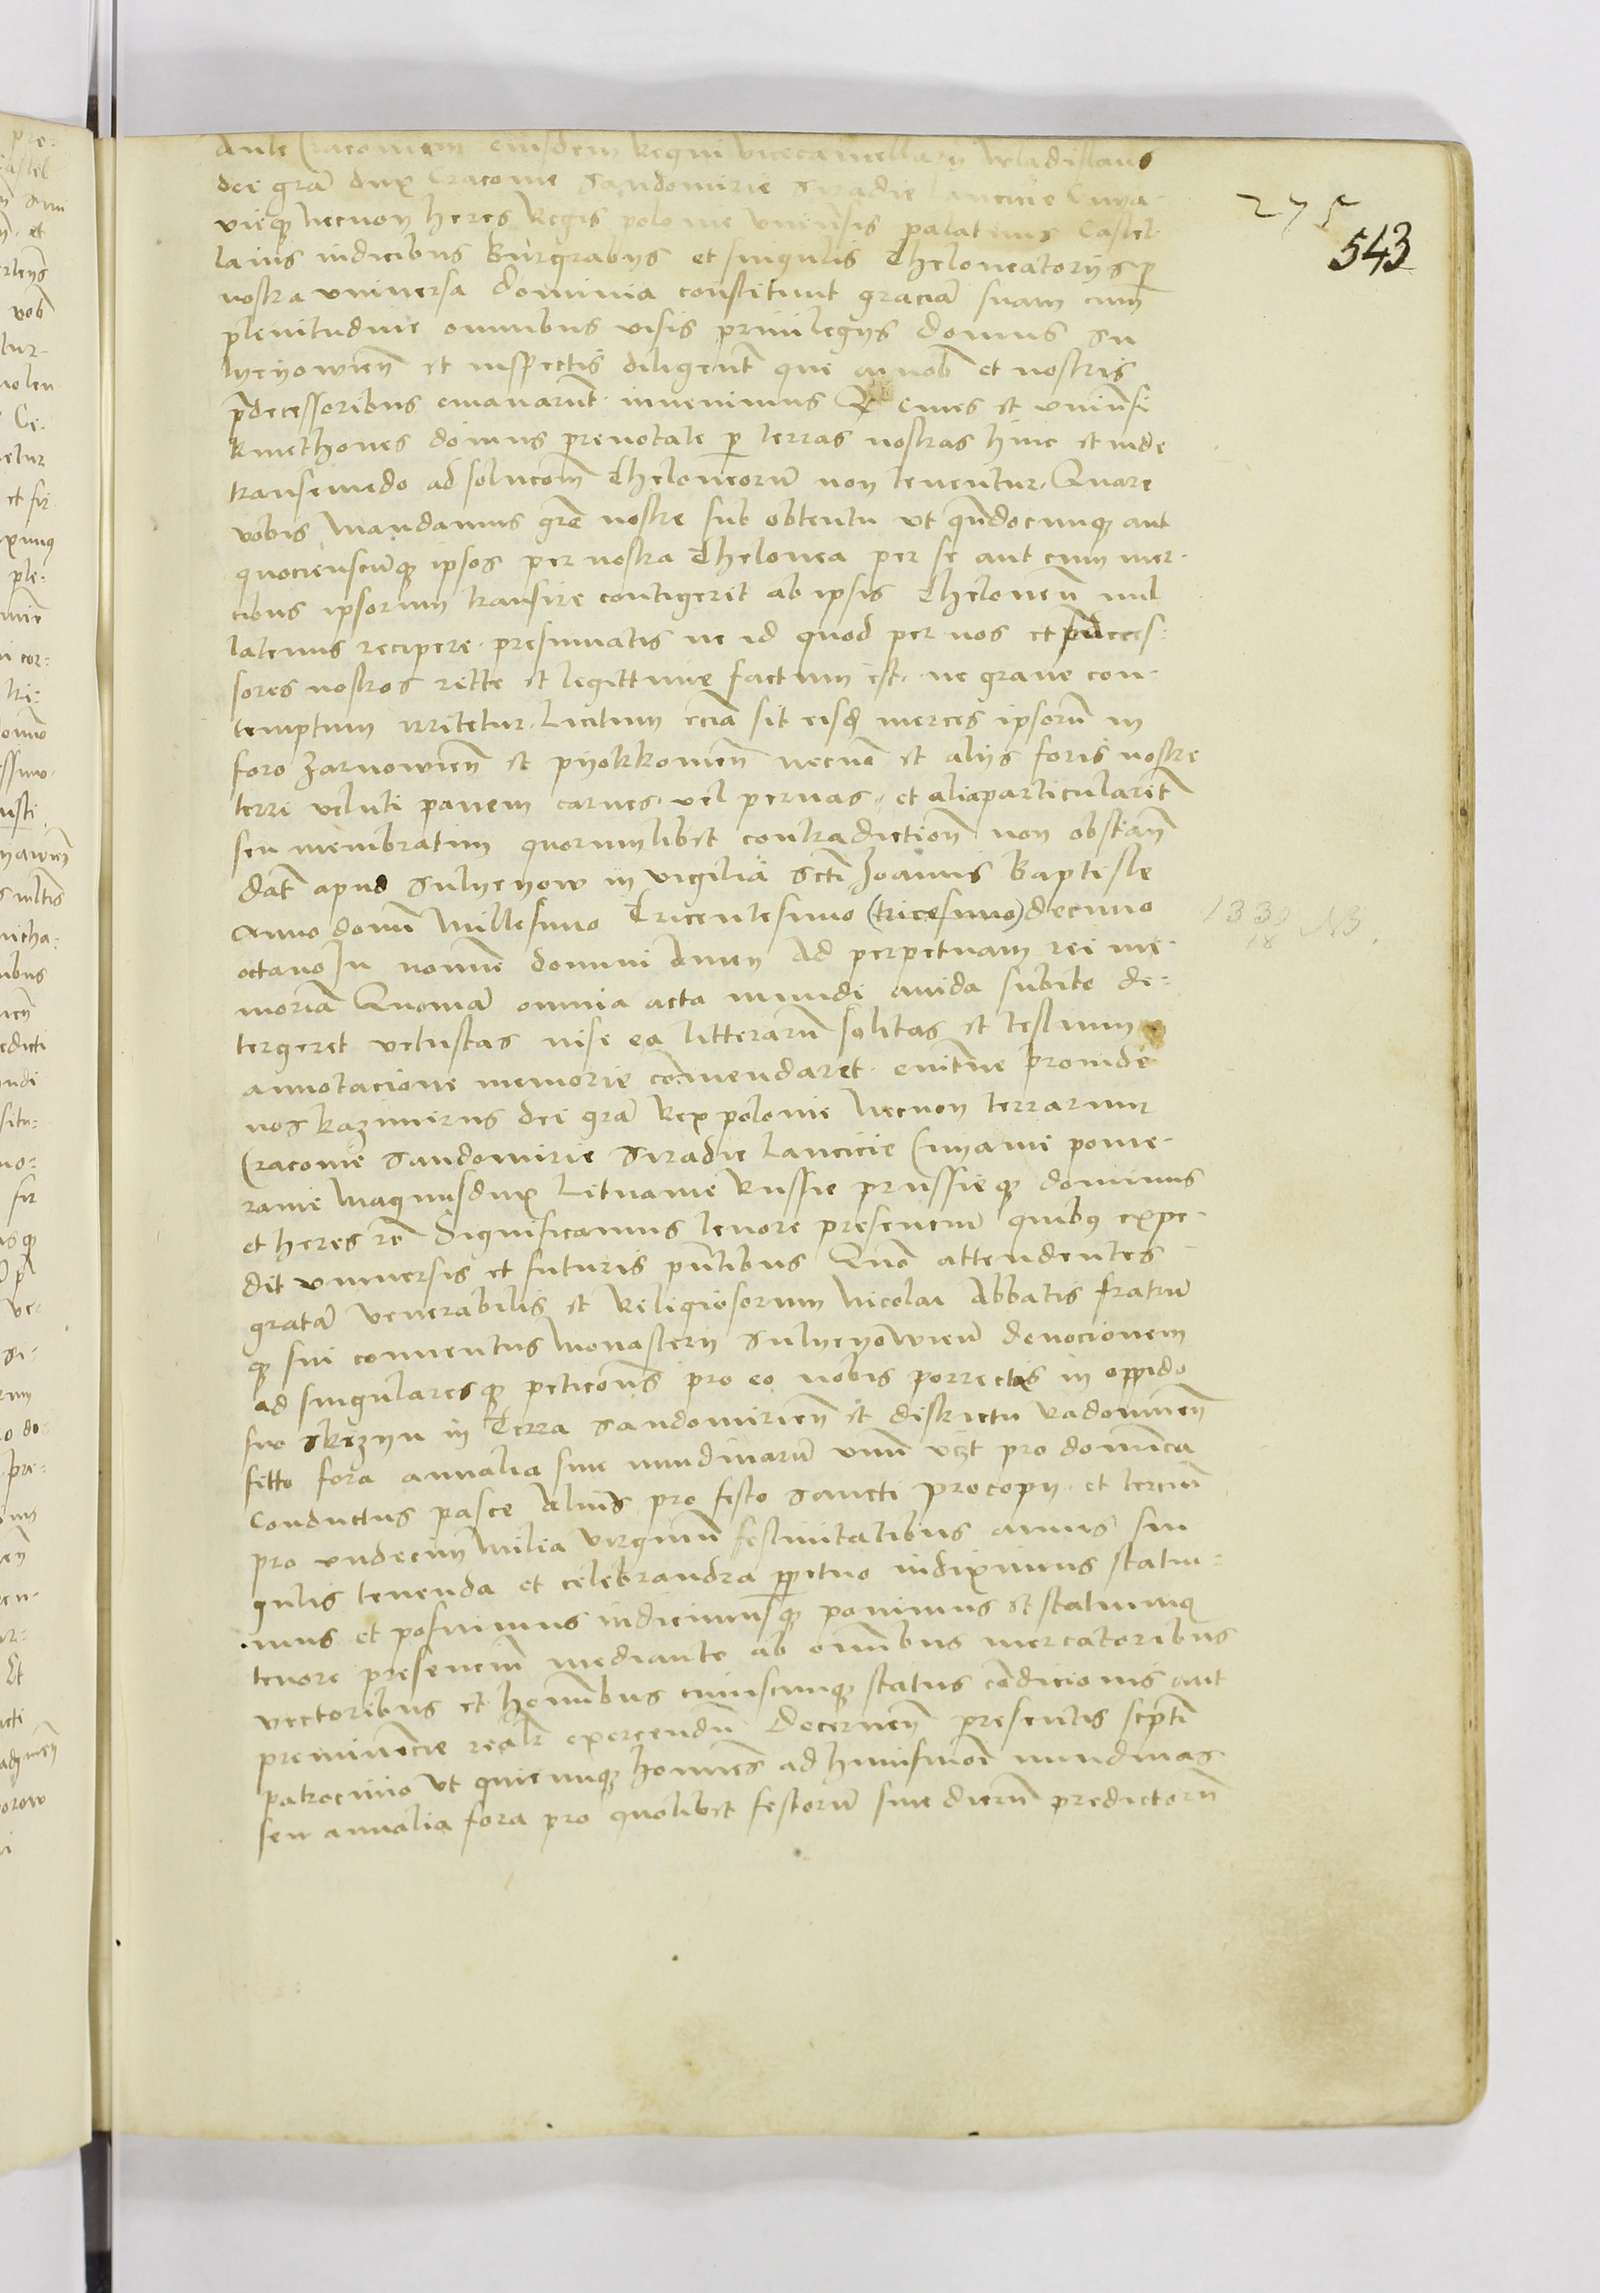 aule Cracoviem eiusdem Regni vicecancellarij Wladislaus
dei gra dux Cracovie Sandomirie Siradie Lancicie Cuya-
vieq necnon heres Regis polonie vniusis palatinis Castel-
lanis iudicibus Burgrabys et singulis Theloneatorijs p
nostra vniversa dominia constitut graciā suam cum
plenitudine omnibus visis privilegys domus Su
lyeyowien et inspectis diligent que a nob et nostris
pdecessoribus emanarut invenimus Q omes et vniusi
kmethones domus prenotate p terras nostras hinc et inde
transeundo ad solucom Theloneorū non tenentur. Quare
vobis mandamus gre nostre sub obtentu vt qndocunq aut
quociescūq ipsos per nostra Thelonea per se aut cum mer-
cibus ipsorum transire contigerit ab ipsis Theloneū nul
latenus recipere presumatis ne id quod per nos et pdeces-
sores nostros ritte et legittime factum est. ne grave con-
temptum irritetur. Licitum ecia sit eisd merces ipsorū in
foro Zarnowien et pyotkkowien necno et alijs foris nostre
terre veluti panem carnes vel pernas et alia particularit
seu membratim quorumlibet contradiction non obstan
dat apud Sulyeyow in vigilia scti Joannis Baptiste
Anno domi Millesimo Tricentesimo (tricesimo) decimo
octavo In nomine domini Amen Ad perpetuam rei me-
moriā Quoniā omnia acta mundi avida subito de-
tergeret vetustas nise ea litterarū solitas et testium
annotacione memorie comendaret evitne proinde
nos kazimirus dei gra Rex polonie Necnon terrarum
Cracovie Sandomirie Siradie Lancicie Cuyavie pome-
ranie Magnusdux Lituanie Russie prussieq dominus
et heres re Significamus tenore presencium quibus expe-
dit vniversis et futuris putibus Quo attendentes
gratā venerabilis et Religiosorum Nicolai Abbatis fratrū
q sui conventus Monastery Sulyeyowien devocionem
ad singularesq peticons pro eo nobis porrectas in oppido
suo Skrzyn in Terra Sandomirien et districtu Radomien
sitto fora annalia sive nundinarū vnū vzt pro domica
Conductus pasce Alius pro festo Sancti procopy et terciū
pro vndecim Milia virginū festivitatibus annis sin
gulis tenenda et celebranda ppetuo indiximus statu-
mus et posuimus indicimusq ponimus et statuimus
tenore presenciū mediante ab omibus mercatoribus
vectoribus et homibus cuiuscunq status condicionis aut
preminencie realr exercendū Decernen presentis scpti
patrocinio vt quicunq homes ad huiusmoi nundinas
seu annalia fora pro quolibet festorū sive dierū predictorū
275
543
1338 NB.
18